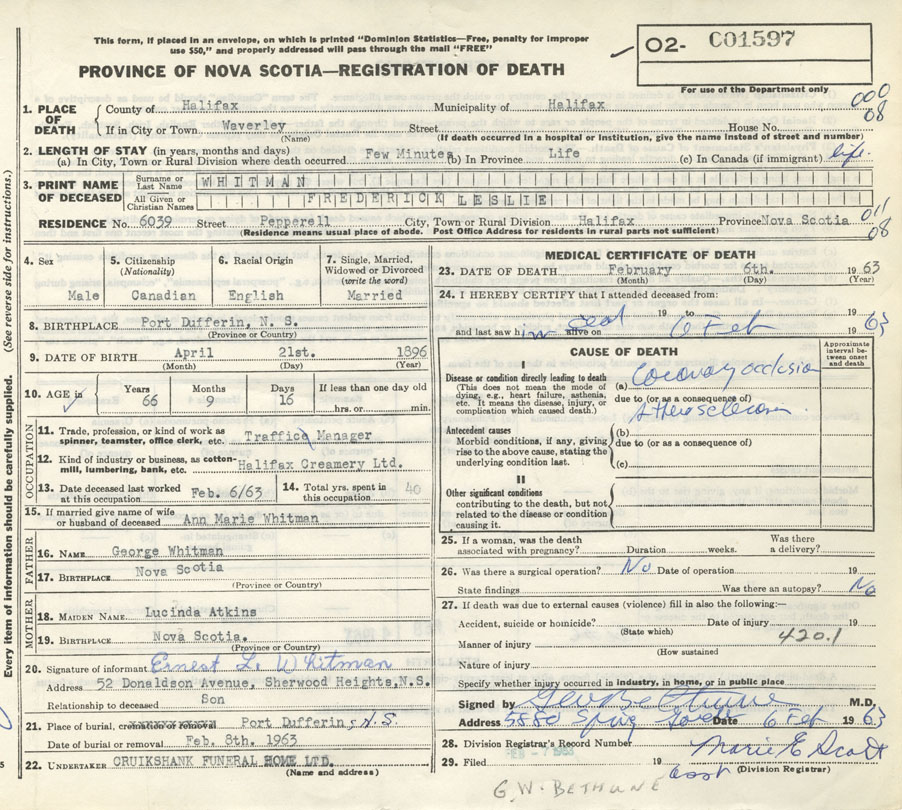 This form, if placed in an envelope, on which is printed "Dominion Statistics—Free, penalty for improper
use $50," and properly addressed will pass through the mail "FREE"
PROVINCE OF NOVA SCOTIA—REGISTRATION OF DEATH
O2- C01597
For use of the Department only
000
08
1. PLACE OF DEATH
County of Halifax Municipality of Halifax
If in City or Town Waverley Street House No.
(Name) (If death occurred in a hospital or institution, give the name instead of street and number)
2. LENGTH OF STAY (in years, months and days)
(a) In City, Town or Rural Division where death occurred Few Minutes (b) In Province Life (c) In Canada (if immigrant) life.
3. PRINT NAME OF DECEASED
Surname or Last Name WHITMAN
All Given or Christian Names FREDERICK LESLIE
RESIDENCE No. 6039 Street Pepperell City, Town or Rural Division Halifax Province Nova Scotia
011
08
(Residence means usual place of abode. Post Office Address for residents in rural parts not sufficient)
(See reverse side for instructions.)
Every item of information should be carefully supplied.
4. Sex
Male
5. Citizenship (Nationality)
Canadian
6. Racial Origin
English
7. Single, Married, Widowed or Divorced (write the word)
Married
8. BIRTHPLACE Port Dufferin, N. S.
(Province or Country)
9. DATE OF BIRTH April 21st. 1896
(Month) (Day) (Year)
10. AGE in
Years Months Days If less than one day old
66 9 16 hrs. or min.
OCCUPATION
11. Trade, profession, or kind of work as spinner, teamster, office clerk, etc. Traffice Manager
12. Kind of industry or business, as cotton-mill, lumbering, bank, etc. Halifax Creamery Ltd.
13. Date deceased last worked at this occupation Feb. 6/63
14. Total yrs. spent in this occupation 40
15. If married give name of wife or husband of deceased Ann Marie Whitman
FATHER
16. NAME George Whitman
17. BIRTHPLACE Nova Scotia
(Province or Country)
MOTHER
18. MAIDEN NAME Lucinda Atkins
19. BIRTHPLACE Nova Scotia.
(Province or Country)
20. Signature of informant Ernest L. Whitman
Address 52 Donaldson Avenue, Sherwood Heights, N.S.
Relationship to deceased Son
21. Place of burial, cremation or removal Port Dufferin, N.S.
Date of burial or removal Feb. 8th. 1963
22. UNDERTAKER CRUIKSHANK FUNERAL HOME LTD.
(Name and address)
MEDICAL CERTIFICATE OF DEATH
23. DATE OF DEATH February 6th. 1963
(Month) (Day) (Year)
24. I HEREBY CERTIFY that I attended deceased from:
19 to 19
and last saw him dead alive on 6 Feb 1963
CAUSE OF DEATH
Approximate interval between onset and death
I
Disease or condition directly leading to death
(This does not mean the mode of dying, e.g., heart failure, asthenia, etc. It means the disease, injury, or complication which caused death.)
(a) Coronary occlusion
due to (or as a consequence of)
Atherosclerosis
Antecedent causes
Morbid conditions, if any, giving rise to the above cause, stating the underlying condition last.
(b)
due to (or as a consequence of)
(c)
II
Other significant conditions
contributing to the death, but not related to the disease or condition causing it.
25. If a woman, was the death associated with pregnancy? Duration weeks. Was there a delivery?
26. Was there a surgical operation? No Date of operation 19
State findings Was there an autopsy? No
27. If death was due to external causes (violence) fill in also the following:—
Accident, suicide or homicide? Date of injury 19
(State which)
420.1
Manner of injury
(How sustained
Nature of injury
Specify whether injury occurred in industry, in home, or in public place
Signed by George Bethune M.D.
Address 5880 Spring Garden Date 6 Feb 1963
28. Division Registrar's Record Number
FEB - 7 1963
29. Filed 19 Marie E Scott
Asst (Division Registrar)
G.W. BETHUNE